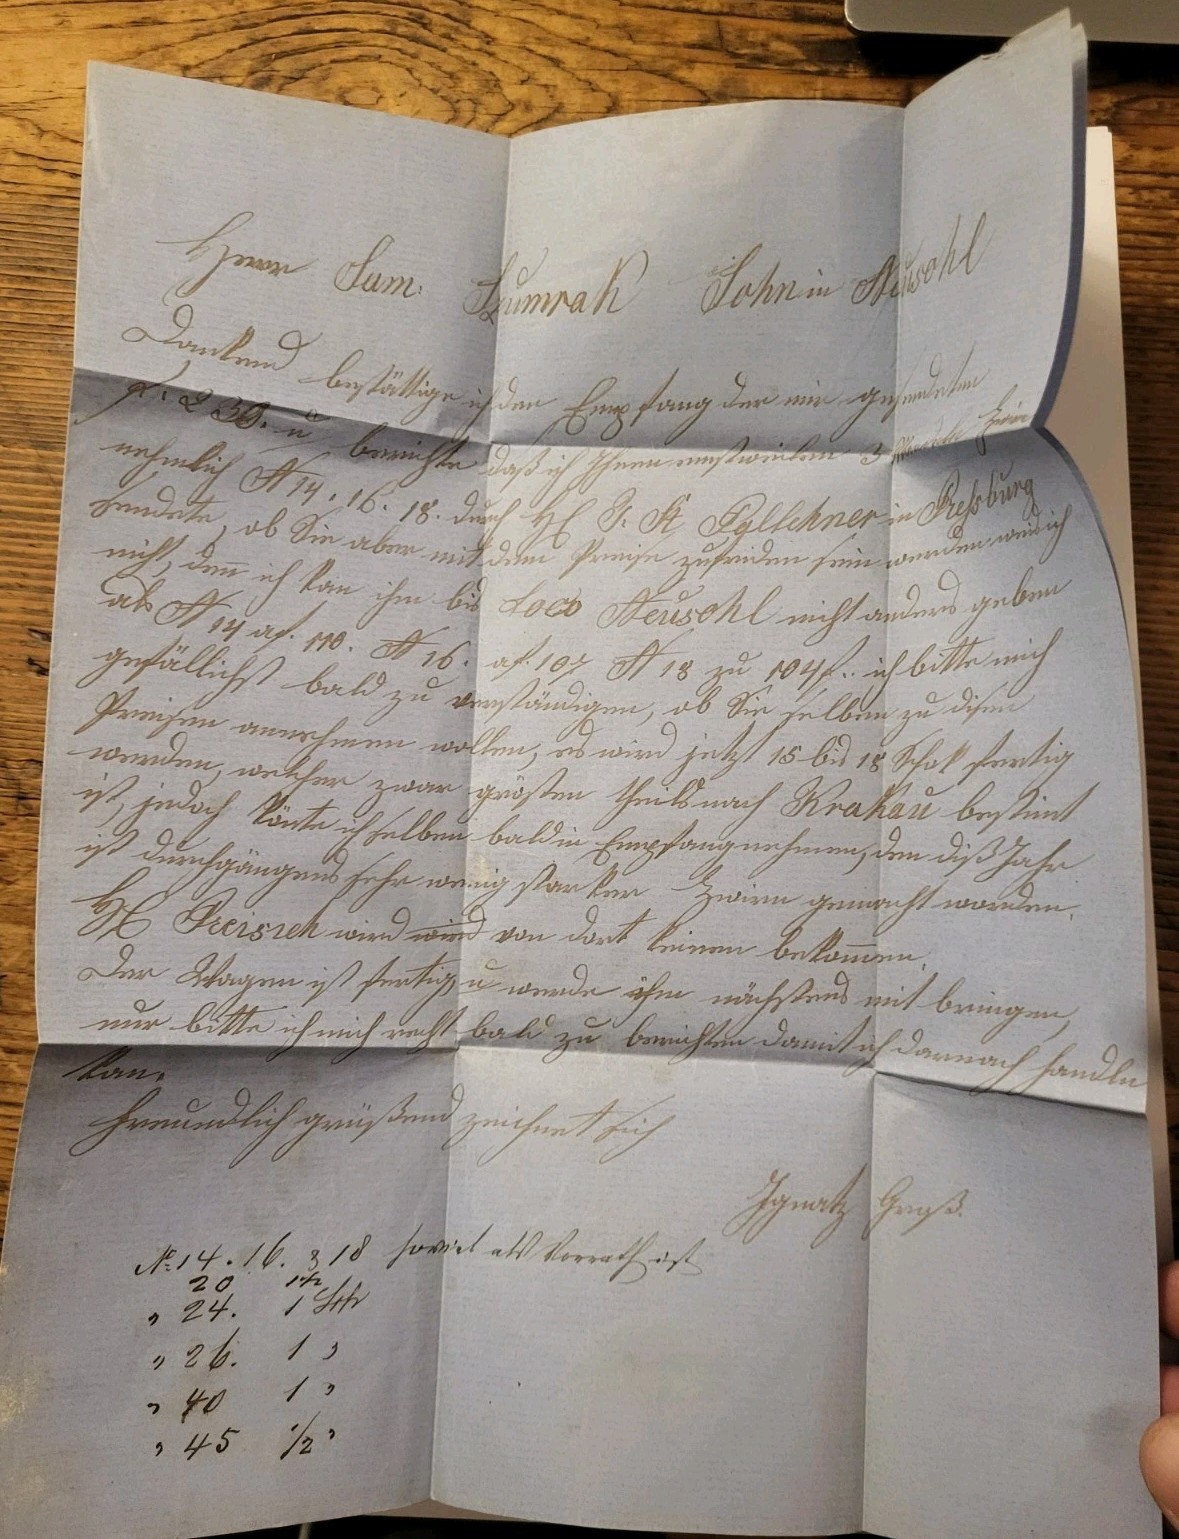 Herrn Sam: Szumrak Sohn in Neusohl
Dankend bestättige ich den Empfang der mir gesendeten
f. 236. u berichte daß ich Ihnen einstweilen 3 Zwirn
nehmlich N 14. 16. 18. durch H J. A in Preßburg
sendete, ob Sie aber mit dem Preise zufriden sein werden weis ich
nicht, den ich kan ihm bis Loco Neusohl nicht anders geben
als N 14 af. 110. N 16. af. 107 N 18 zu 104 f.. ich bitte mich
gefälligst bald zu verständigen, ob Sie selben zu disen
Preisen annehmen wollen, es wird jetzt 15 bis 18 Schok fertig
werden, welcher zwar grösten theils nach Krakau bestimt
ist, jedoch könte ich selben bald in Empfang nehmen, den diß Jahr
ist durchgängends sehr wenig starker Zwirn gemacht worden.
H Preisich wird wird von dort keinen bekommen.
Der Wagen ist fertig, u werde ihn nächstens mit bringen,
nur bitte ich mich recht bald zu berichten damit ich darnach handln
kan.
Freundlich grüßend zeichnet sich
Ignatz Groß.
No 14. 16. & 18 soviel als Vorrath ist
20 1
" 24. 1
" 26. 1 "
" 40 1 "
" 45 1/2 "